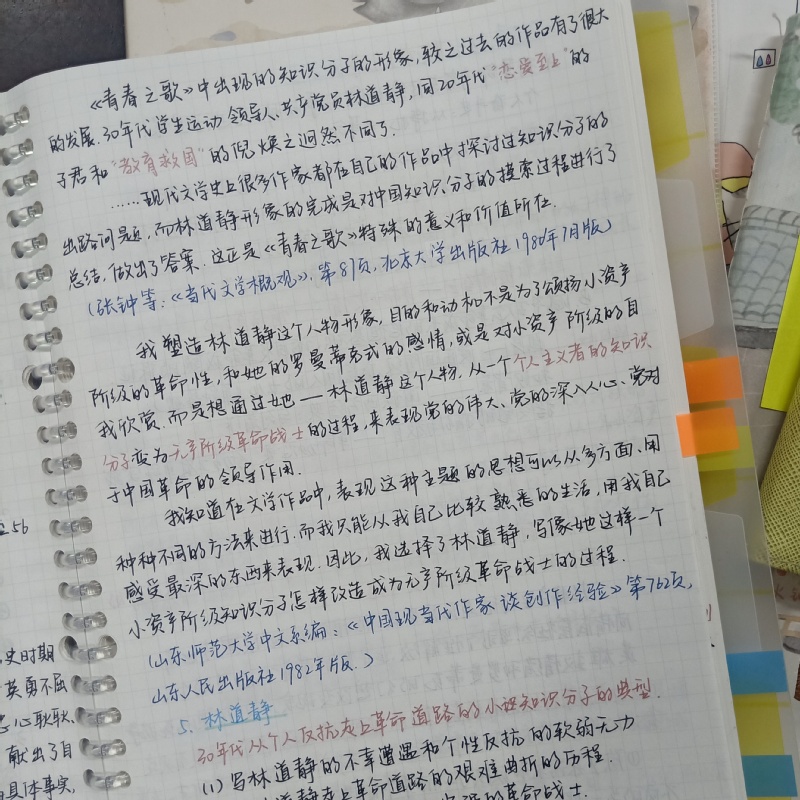 《青春之歌》中出现的知识分子的形象，较之过去的作品有了很大
的发展.30年代学生运动领导人、共产党员林道静，同20年代"恋爱至上"的
子君和"教育救国"的倪焕之迥然不同了.
……现代文学史上很多作家都在自己的作品中探讨过知识分子的
出路问题，而林道静形象的完成是对中国知识分子的摸索过程进行了
总结，做出了答案.这正是《青春之歌》特殊的意义和价值所在.
(张钟等：《当代文学概观》，第87页，北京大学出版社1980年7月版)
我塑造林道静这个人物形象，目的和动机不是为了颂扬小资产
阶级的革命性，和她的罗曼蒂克式的感情，或是对小资产阶级的自
我欣赏.而是想通过她——林道静这个人物，从一个个人主义者的知识
分子变为无产阶级革命战士的过程，来表现党的伟大、党的深入人心、党对
于中国革命的领导作用.
我知道在文学作品中，表现这种主题的思想可以从多方面、用
种种不同的方法来进行.而我只能从我自己比较熟悉的生活，用我自己
感受最深的东西来表现.因此，我选择了林道静，写像她这样一个
小资产阶级知识分子怎样改造成为无产阶级革命战士的过程.
(山东师范大学中文系编：《中国现当代作家谈创作经验》第762页，
山东人民出版社1982年版.)
5. 林道静
30年代从个人反抗走上革命道路的小说知识分子的典型.
(1) 写林道静的不幸遭遇和个性反抗的软弱无力
道静走上革命道路的艰难曲折的历程.
的革命战士.
56
史时期
英勇不屈
心耿耿
献出了自
具体事实